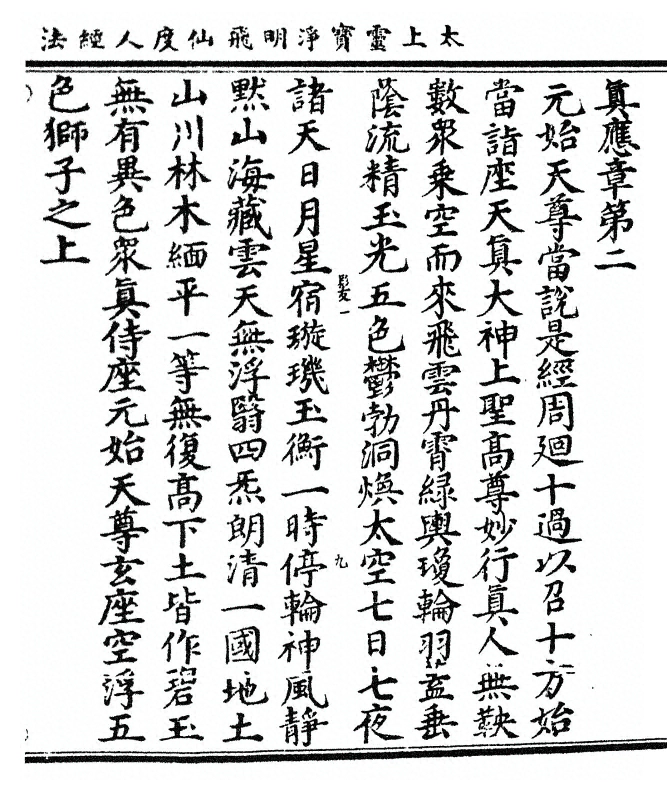 太上靈寶淨明飛仙度人經法
眞應章第二
元始天尊當說是經周廻十過以召十方始
當詣座天眞大神上聖高尊妙行眞人無鞅
數眾乗空而來飛雲丹霄緑輿瓊輪羽盖垂
蔭流精玉光五色鬱勃洞煥太空七日七夜
諸天日月星宿璇璣玉衡一時停輪神風靜
默山海藏雲天無浮翳四炁朗清一國地土
山川林木緬平一等無復高下土皆作碧玉
無有異色眾眞侍座元始天尊玄座空浮五
色獅子之上
九